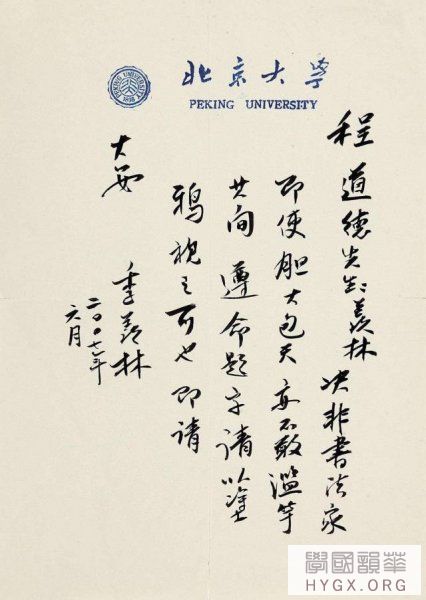 北京大學
PEKING UNIVERSITY
PEKING UNIVERSITY 1898
程道德先生:羡林决非書法家
即使胆大包天亦不敢滥竽
其间遵命题字请以塗
鸦视之可也即请
大安
季羡林
二〇〇七年
六月
學國韻華
HYGX.ORG